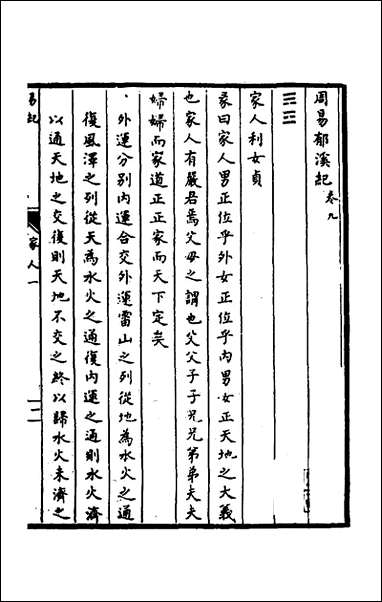 周易郁溪紀 卷九
家人利女貞
彖曰家人男正位乎外女正位乎内男女正天地之大義
也家人有嚴君焉父母之謂也父父子子兄兄弟弟夫夫
婦婦而家道正正家而天下定矣
外運分别内運合交外運雷山之列從地為水火之通
復風澤之列從天為水火之通復内運之通則水火濟
以通天地之交復則天地不交之終以歸水火未濟之
家人一